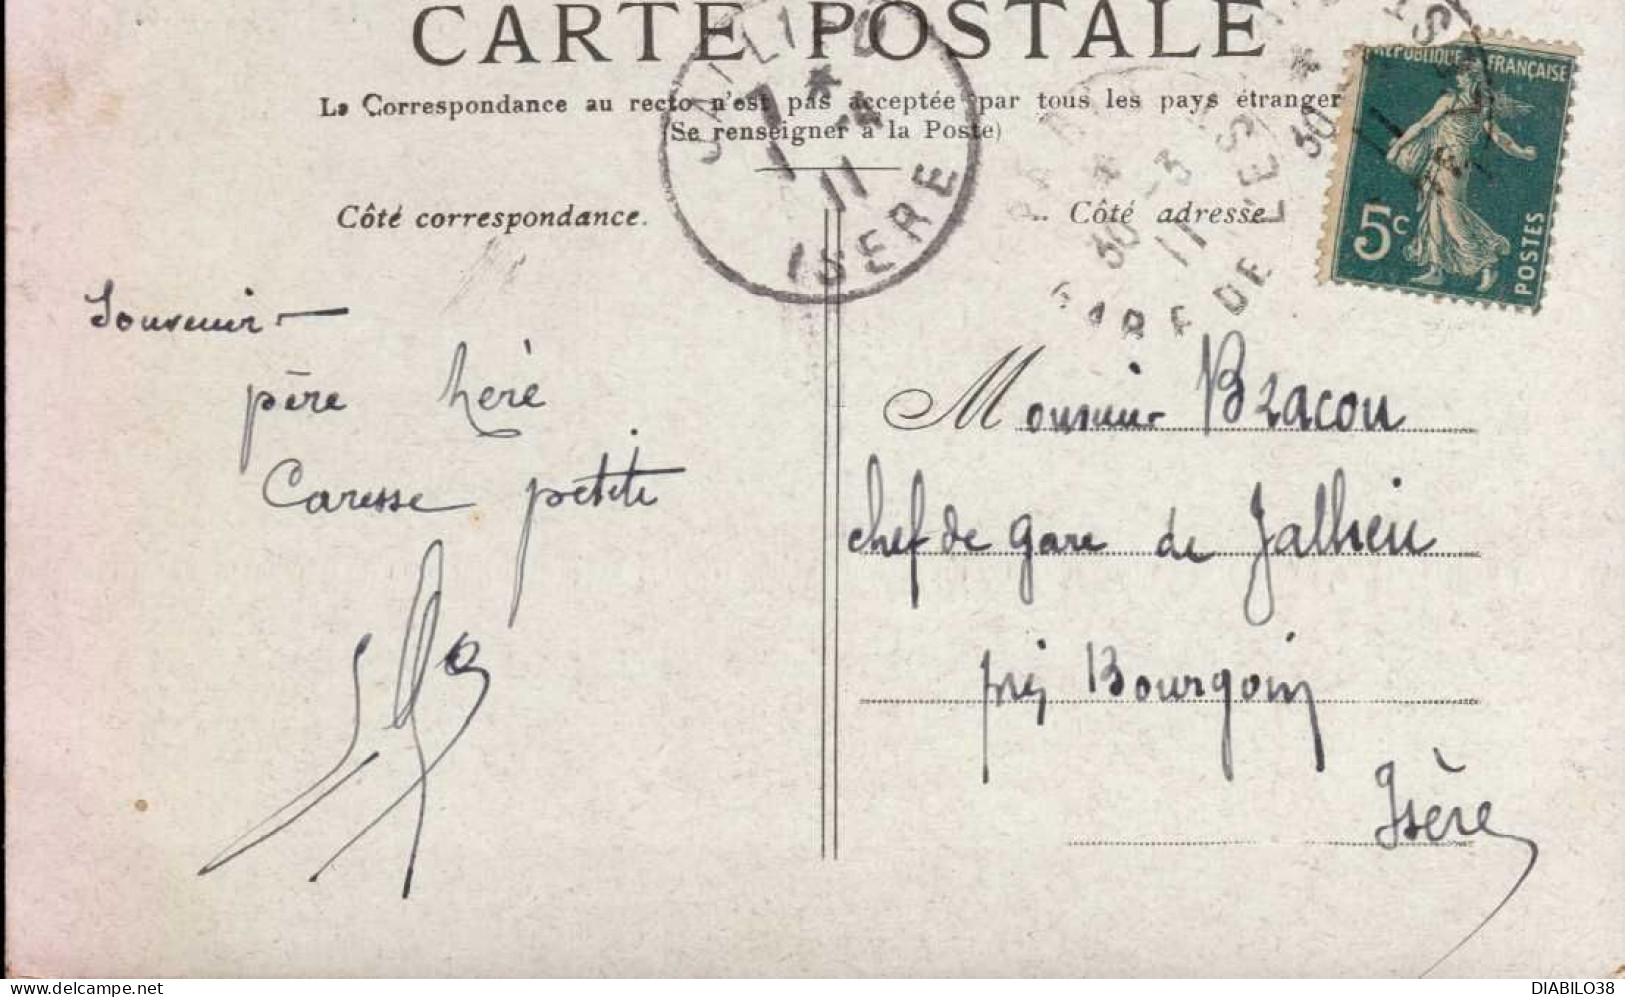 CARTE POSTALE
La Correspondance au recto n'est pas acceptée par tous les pays étranger
(Se renseigner à la Poste)
Côté correspondance.
Côté adresse
JALLIEU
1 11
ISERE
30 -3
11
GARE DE
REPUBLIQUE FRANÇAISE
5c
POSTES
Souvenir -
père heré
Caresse petite
Monsieur Bracon
chef de gare de Jallieu
près Bourgoin
Isère
delcampe.net
DIABILO38